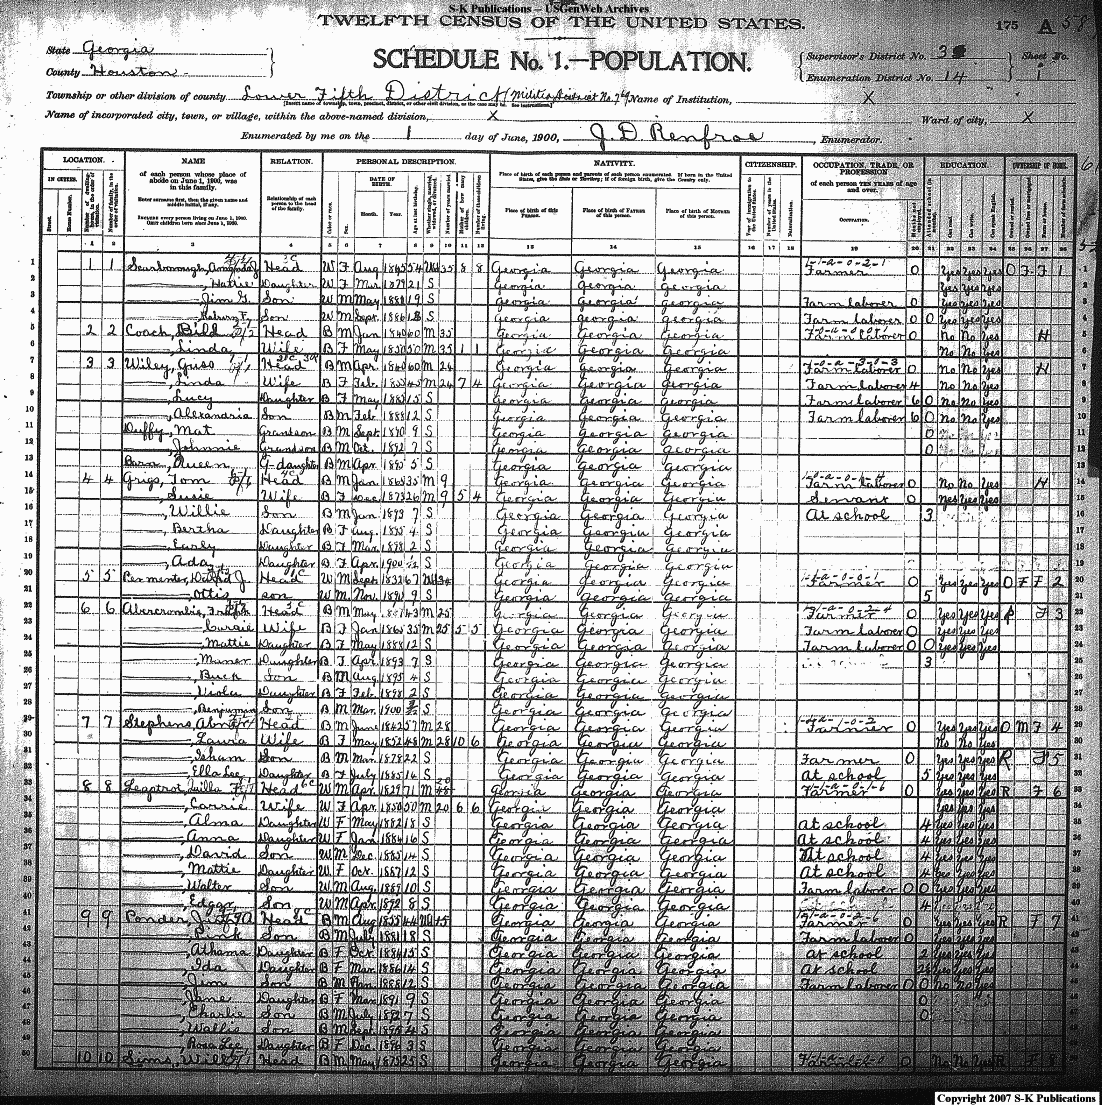 S-K Publications – USGenWeb Archives
TWELFTH CENSUS OF THE UNITED STATES.
175 A 58
State Georgia
County Houston
SCHEDULE No. 1.—POPULATION.
Supervisor's District No. 3
Enumeration District No. 14
Sheet No. 1
Township or other division of county Lower Fifth District (Militia District No.
Name of Institution, X
Name of incorporated city, town, or village, within the above-named division, X
Ward of city, X
Enumerated by me on the 1 day of June, 1900, J. D. Renfroe, Enumerator.
LOCATION. NAME RELATION. PERSONAL DESCRIPTION. NATIVITY. CITIZENSHIP. OCCUPATION, TRADE, OR PROFESSION EDUCATION. OWNERSHIP OF HOME.
IN CITIES. of each person whose place of abode on June 1, 1900, was in this family.
Enter surname first, then the given name and middle initial, if any.
Include every person living on June 1, 1900. Omit children born since June 1, 1900.
Relationship of each person to the head of the family.
DATE OF BIRTH. Month. Year.
Place of birth of this Person. Place of birth of Father of this person. Place of birth of Mother of this person.
of each person TEN YEARS of age and over.
OCCUPATION.
1 1 Scarborough, Head W F Aug 1845 54 Wd 35 8 8 Georgia Georgia Georgia Farmer 0 Yes Yes Yes O F F 1
Hattie Daughter W F Mar 1879 21 S Georgia Georgia Georgia Yes Yes Yes
Jim G. Son W M May 1880 19 S Georgia Georgia Georgia Farm laborer 0 Yes Yes Yes
Son W M Sept 1886 13 S Georgia Georgia Georgia Farm laborer 0 0 Yes Yes Yes
2 2 Coach, Bild Head B M Jan 1840 60 M 35 Georgia Georgia Georgia Farm laborer 0 No No Yes H
Linda Wife B F May 1850 50 M 35 1 1 Georgia Georgia Georgia No No Yes
3 3 Wiley, Guss Head B M Apr 1840 60 M 24 Georgia Georgia Georgia Farm laborer 0 No No Yes H
Linda Wife B F Feb 1855 45 M 24 7 4 Georgia Georgia Georgia Farm laborer 4 No No Yes
Lucy Daughter B F May 1885 15 S Georgia Georgia Georgia Farm laborer 6 0 No No Yes
Alexandria Son B M Feb 1888 12 S Georgia Georgia Georgia Farm laborer 6 0 No No Yes
Duffy, Mat Grandson B M Sept 1890 9 S Georgia Georgia Georgia 0
Johnnie Grandson B M Oct 1892 7 S Georgia Georgia Georgia 0
Queen G-daughter B M Apr 1895 5 S Georgia Georgia Georgia
4 4 Grigs, Tom Head B M Jan 1865 35 M 9 Georgia Georgia Georgia Farm laborer 0 No No Yes H
Susie Wife B F Dec 1873 26 M 9 5 4 Georgia Georgia Georgia Servant 0 Yes Yes Yes
Willie Son B M Jan 1893 7 S Georgia Georgia Georgia At school 3
Bertha Daughter B F Aug 1895 4 S Georgia Georgia Georgia
Early Daughter B F Mar 1898 2 S Georgia Georgia Georgia
Ada Daughter B F Apr 1900 S Georgia Georgia Georgia
5 5 Permenter, J. Head W M Sept 1832 67 Wd 34 Georgia Georgia Georgia Farmer 0 Yes Yes Yes O F F 2
Ottis son W M Nov 1890 9 S Georgia Georgia Georgia 5
6 6 Abercrombie, Head B M May 43 M 25 Georgia Georgia Georgia Farmer 0 Yes Yes Yes F 3
Wife B F Jan 1865 35 M 25 5 5 Georgia Georgia Georgia Farm laborer 0 Yes Yes Yes
Mattie Daughter B F May 1888 12 S Georgia Georgia Georgia Farm laborer 0 0 Yes Yes Yes
Daughter B F Apr 1893 7 S Georgia Georgia Georgia 3
Buck Son B M Aug 1895 4 S Georgia Georgia Georgia
Viola Daughter B F Feb 1898 2 S Georgia Georgia Georgia
Benjamin Son B M Mar 1900 S Georgia Georgia Georgia
7 7 Stephens, Head B M June 1842 57 M 28 Georgia Georgia Georgia Farmer 0 Yes Yes Yes O M F 4
Laura Wife B F May 1852 48 M 28 10 6 Georgia Georgia Georgia No No Yes
Isham Son B M Mar 1878 22 S Georgia Georgia Georgia Farmer 0 Yes Yes Yes R F 5
Ella Lee Daughter B F July 1885 14 S Georgia Georgia Georgia At school 5 Yes Yes Yes
8 8 Leaptrot, Head W M Apr 1829 71 M Georgia Georgia Georgia Farmer 0 Yes Yes Yes R F 6
Carrie Wife W F Apr 1850 50 M 20 6 6 Georgia Georgia Georgia Yes Yes Yes
Alma Daughter W F May 1882 18 S Georgia Georgia Georgia At school 4 Yes Yes Yes
Anna Daughter W F Jan 1884 16 S Georgia Georgia Georgia At school 4 Yes Yes Yes
David Son W M Dec 1885 14 S Georgia Georgia Georgia At school 4 Yes Yes Yes
Mattie Daughter W F Oct 1887 12 S Georgia Georgia Georgia At school 4 Yes Yes Yes
Walter Son W M Aug 1889 10 S Georgia Georgia Georgia Farm laborer 0 0 Yes Yes Yes
Edgar Son W M Apr 1892 8 S Georgia Georgia Georgia 4
9 9 Ponder, Head B M Aug 1855 44 Wd 15 Georgia Georgia Georgia Farmer 0 Yes Yes Yes R F 7
Son B M July 1881 18 S Georgia Georgia Georgia Farm laborer 0 Yes Yes Yes
Athama Daughter B F Oct 1884 15 S Georgia Georgia Georgia At school 2 Yes Yes Yes
Ida Daughter B F Mar 1886 14 S Georgia Georgia Georgia At school Yes Yes Yes
Jim Son B M Jan 1888 12 S Georgia Georgia Georgia Farm laborer 0 0 No No Yes
Jane Daughter B F Mar 1891 9 S Georgia Georgia Georgia 0
Charlie Son B M July 1892 7 S Georgia Georgia Georgia 0
Wallie Son B M Sept 1895 4 S Georgia Georgia Georgia
Rosa Lee Daughter B F Dec 1896 3 S Georgia Georgia Georgia
10 10 Sims, Will Head B M May 1875 25 S Georgia Georgia Georgia Farmer 0 No No Yes R F 8
Copyright 2007 S-K Publications